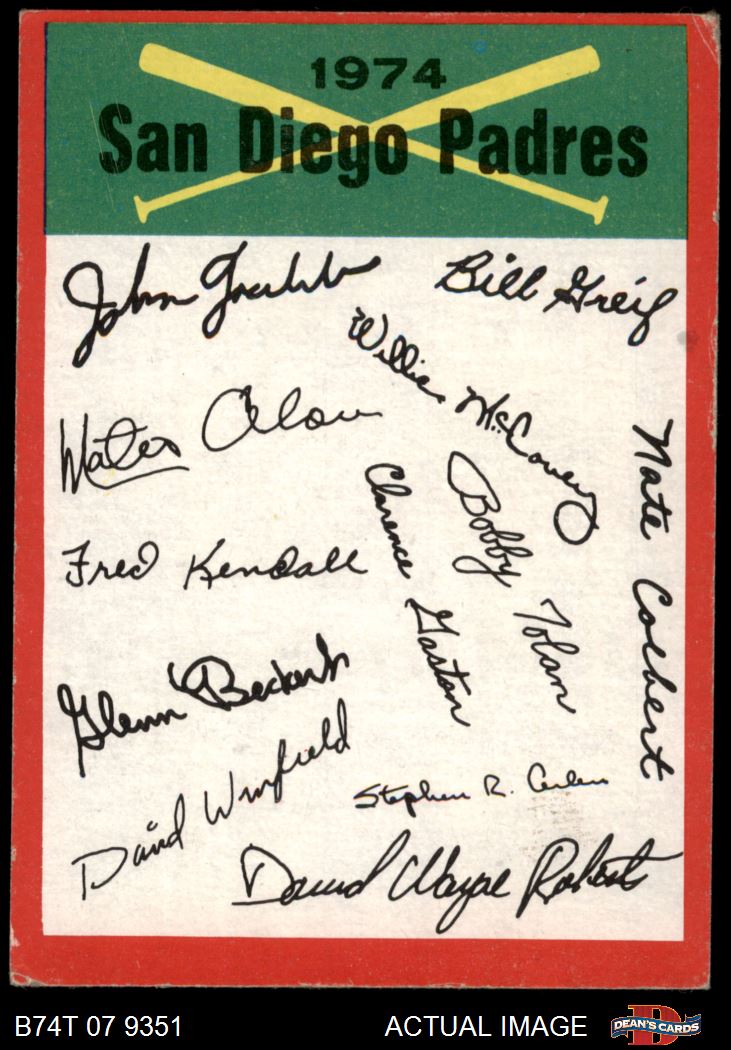 1974
San Diego Padres
John Grubb
Bill Greif
Willie McCovey
Mateo Alou
Nate Colbert
Clarence Gaston
Bobby Tolan
Fred Kendall
Glenn Beckert
David Winfield
Stephen R. Arlin
David Wayne Roberts
B74T 07 9351
ACTUAL IMAGE
D
DEAN'S CARDS